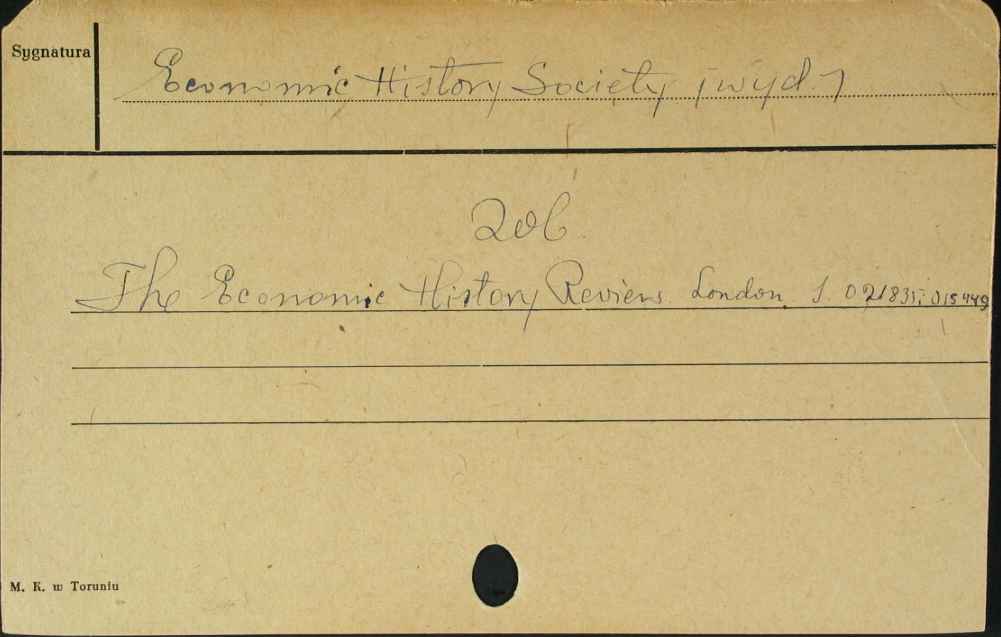 Sygnatura
Economic History Society (wyd.)
Zob.
The Economic History Review. London. S. 021835; 015449
M. K. w Toruniu